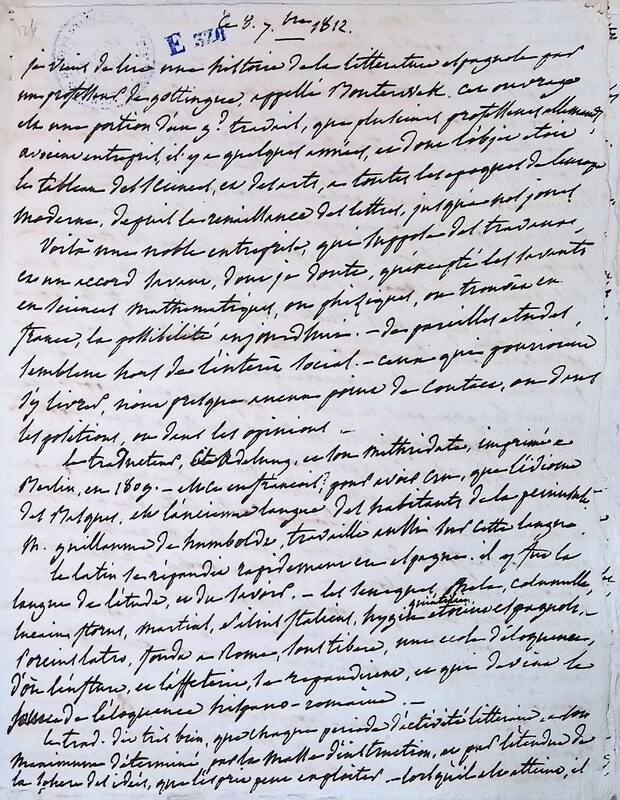 Le 8. 7.bre 1812.
E 320
je viens de lire une histoire de la littérature espagnole par
un professeur de gottingue, appellé Bouterwek. Cet ouvrage
est une portion d'un gd travail, que plusieurs professeurs allemands
avoient entrepris, il y a quelques années, et dont l'objet étoit
le tableau des sciences, et des arts, à toutes les époques de l'europe
moderne, depuis la renaissance des lettres, jusqu'à nos jours
Voilà une noble entreprise, qui suppose des travaux,
et un accord savant, dont je doute, qu'excepté les savants
en sciences mathématiques, ou phisiques, on trouva en
france, la possibilité aujourdhui. - de pareilles études,
semblent hors de l'intérêt social. - ceux qui pourroient
s'y livrer, n'ont presque aucun point de contact, ou dans
les positions, ou dans les opinions -
le traducteur, cite Adelung, et son mithridate, imprimé à
Berlin, en 1809. - est-ce en français? pour avoir cru, que l'idiome
des Basques, est l'ancienne langue des habitants de la péninsule
M. guillaume de humboldt, travaille aussi sur cette langue
le latin se répandit rapidement en espagne. il y fut la
langue de l'étude, et du savoir. - les seneques, Mela, columelle,
lucain, florus, martial, silius Italicus, hygin quintilien étoient espagnols. -
Porcius latro, fonda à Rome, sous tibère, une école d'éloquence,
d'où l'enflure, et l'afféterie, se repandirent, et que devint le
de l'éloquence hispano-romaine -
le trad. dit très bien, que chaque période d'activité littéraire, a son
maximum déterminé, par la masse d'instruction, et par l'étendue de
la sphère des idées, que l'esprit peut exploiter. - lorsqu'il est atteint, il